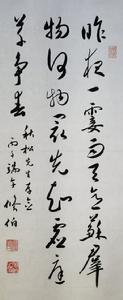 昨夜一霎雨天意蘇羣
物何物最先知虛庭
草爭
秋松先生
丙子端午